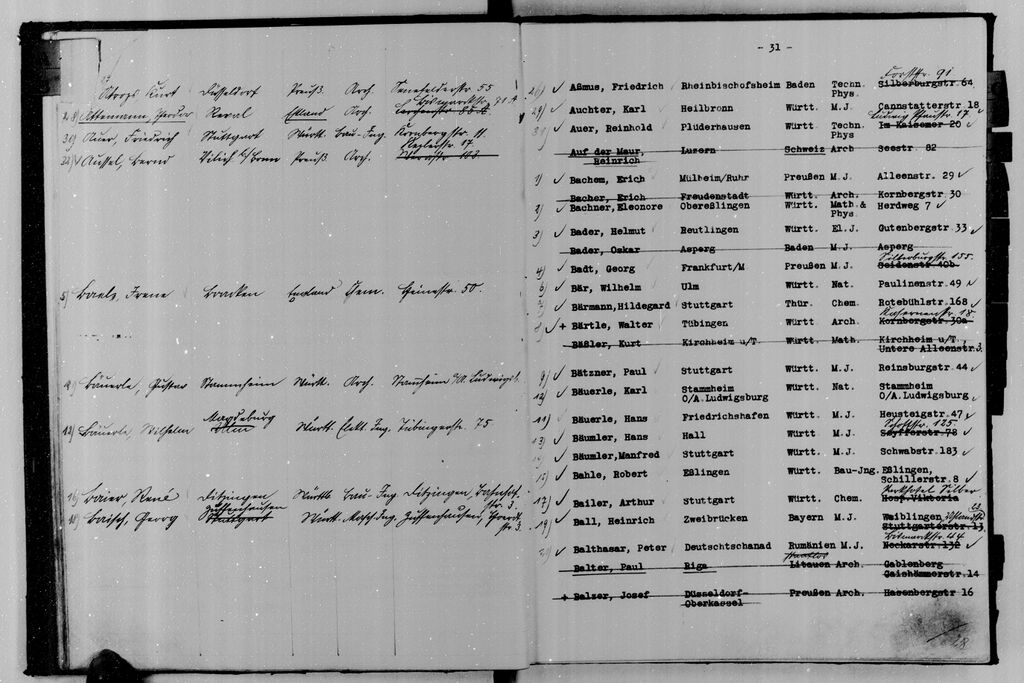 Kurt Düsseldorf Preuß. Arch. Senefelderstr 55
Bismarckstr. 91 4
28) Ottemann, Reval Estland Arch.
30) Auer, Friedrich Stuttgart Württ. Bau-Ing. Kornbergstr.
32) Aussel, Bernd Vilich b/Bonn Preuß Arch.
5) Baels, Irene England Chem. Heinestr. 50.
9) Bäuerle, Gustav Stammheim Württ. Arch. Stammheim O/A. Ludwigsb.
Magdeburg
12) Bäuerle, Wilhelm Ulm Württ. Elekt. Ing. Tübingerstr. 75
16) Baier René Ditzingen Württbg Bau-Ing. Ditzingen, Bahnhof-
str. 3.
Zuffenhausen
18) Baisch, Georg Stuttgart Württ. Masch. Ing. Zuffenhausen,
str 3.
- 31 -
Forststr. 91
Aßmus, Friedrich Rheinbischofsheim Baden Techn. Silberburgstr 64
Phys.
29) Auchter, Karl Heilbronn Württ. M.J. Cannstatterstr 18
Ludwig Pfaustr 17
31) Auer, Reinhold Plüderhausen Württ Techn. Im Kaisemer 20
Phys
Auf der Maur, Luzern Schweiz Arch Seestr 82
Reinrich
1) Bachem, Erich Mülheim/Ruhr Preußen M.J. Alleenstr. 29
Bacher, Erich Freudenstadt Württ. Arch. Kornbergstr 30
2) Bachner, Eleonore Obereßlingen Württ. Math.& Herdweg 7
Phys.
3) Bader, Helmut Reutlingen Württ. El.J. Gutenbergstr 33
Bader, Oskar Asperg Baden M.J. Asperg
Silberburgstr 155.
4) Badt, Georg Frankfurt/M Preußen M.J. Seidenstr 40b
6) Bär, Wilhelm Ulm Württ. Nat. Paulinenstr. 49
Bärmann,Hildegard Stuttgart Thür. Chem. Rotebühlstr. 168
Kasernenstr. 18
8) + Bärtle, Walter Tübingen Württ Arch. Kornbergstr. 30a
Bäßler, Kurt Kirchheim u/T Württ. Math. Kirchheim u/T.
Untere Alleenstr.3
9) Bätzner, Paul Stuttgart Württ. M.J. Reinsburgstr. 44
Bäuerle, Karl Stammheim Württ. Nat. Stammheim
O/A.Ludwigsburg O/A.Ludwigsburg
11) Bäuerle, Hans Friedrichshafen Württ. M.J. Heusteigstr. 47
Schottstr. 125
13) Bäumler, Hans Hall Württ. M.J. Seyfferstr 78
Bäumler,Manfred Stuttgart Württ. M.J. Schwabstr.183
Bahle, Robert Eßlingen Württ. Bau-Jng. Eßlingen,
Schillerstr. 8
Silber
17) Bailer, Arthur Stuttgart Württ. Chem. Hosp.Viktoria
19) Ball, Heinrich Zweibrücken Bayern M.J. Waiblingen
Stuttgarterstr.13
Bismarckstr. 44
Balthasar, Peter Deutschtschanad Rumänien M.J. Neckarstr.132
staatlos
Balter, Paul Riga Litauen Arch. Gablenberg
Gaishämmerstr. 14
+ Balzer, Josef Düsseldorf- Preußen Arch. Hasenbergstr 16
Oberkassel
28